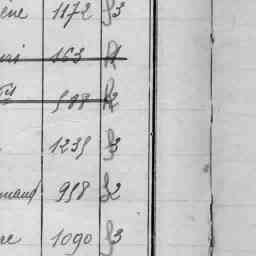 ène 1172 f3
163 f1
588 f2
1235 f3
mand 958 f2
re 1090 f3